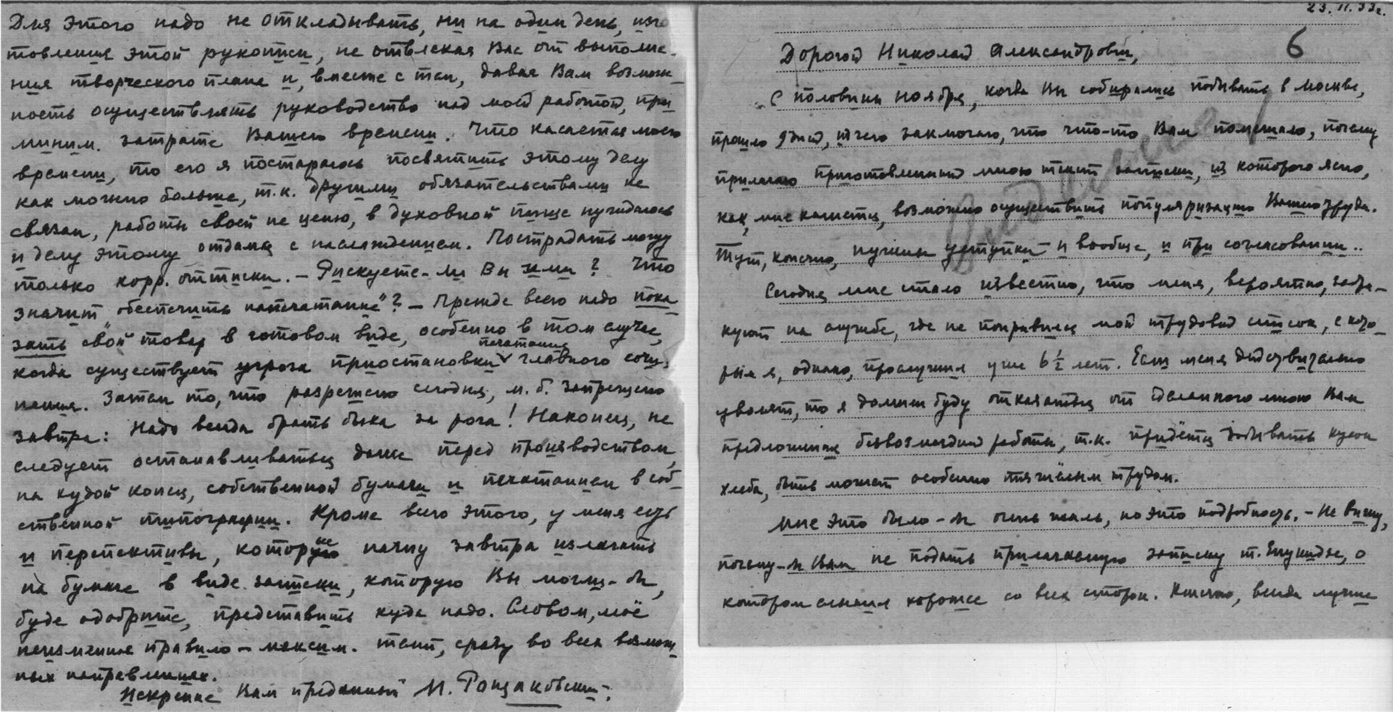 Для этого надо не откладывать, ни на один день, изго-
товления этой рукописи, не отвлекая Вас от выполне-
ния творческого плана и, вместе с тем, давая Вам возмож-
ность осуществлять руководство над моей работой, при
миним. затрате Вашего времени. Что касается моего
времени, то его я постараюсь посвятить этому делу
как можно больше, т.к. другими обязательствами не
связан, работы своей не ценю, в духовной пище нуждаюсь
и делу этому отдамся с наслаждением. Пострадать могут
только корр. оттиски. – Рискуете-ли Вы ими? Что
значит "обеспечить напечатание"? – Прежде всего надо пока-
зать свой товар в готовом виде, особенно в том случае,
когда существует угроза приостановки печатания главного сочи-
нения. Затем то, что разрешено сегодня, м.б. запрещено
завтра: Надо всегда брать быка за рога! Наконец, не
следует останавливаться даже перед производством,
на худой конец, собственной бумаги и печатанием в соб-
ственной типографии. Кроме всего этого, у меня есть
и перспективы, которые начну завтра излагать
на бумаге в виде записки, которую Вы могли-бы,
буде одобрите, представить куда надо. Словом, моё
неизменное правило – максим. темп, сразу во всех возмож-
ных направлениях.
Искренне Вам преданный М. Рощаковский.
23.11.33г.
6
Дорогой Николай Александрович,
С половины ноября, когда Вы собирались побывать в Москве,
прошло 9 дней, из чего заключаю, что что-то Вам помешало, почему
прилагаю приготовленный мною текст записки, из которого ясно,
как, мне кажется, возможно осуществить популяризацию Вашего труда.
Тут, конечно, нужны уступки и вообще, и при согласовании..
Сегодня мне стало известно, что меня, вероятно, забра-
куют на службе, где не понравился мой трудовой список, с кото-
рым я, однако, прослужил уже 6½ лет. Если меня действительно
уволят, то я должен буду отказаться от сделанного мною Вам
предложения безвозмездной работы, т.к. придётся добывать кусок
хлеба, быть может особенно тяжёлым трудом.
Мне это было-бы очень жаль, но это подробность. – Не вижу,
почему-бы Вам не подать прилагаемую записку т. Енукидзе, о
котором слышал хорошее со всех сторон. Конечно, всегда лучше